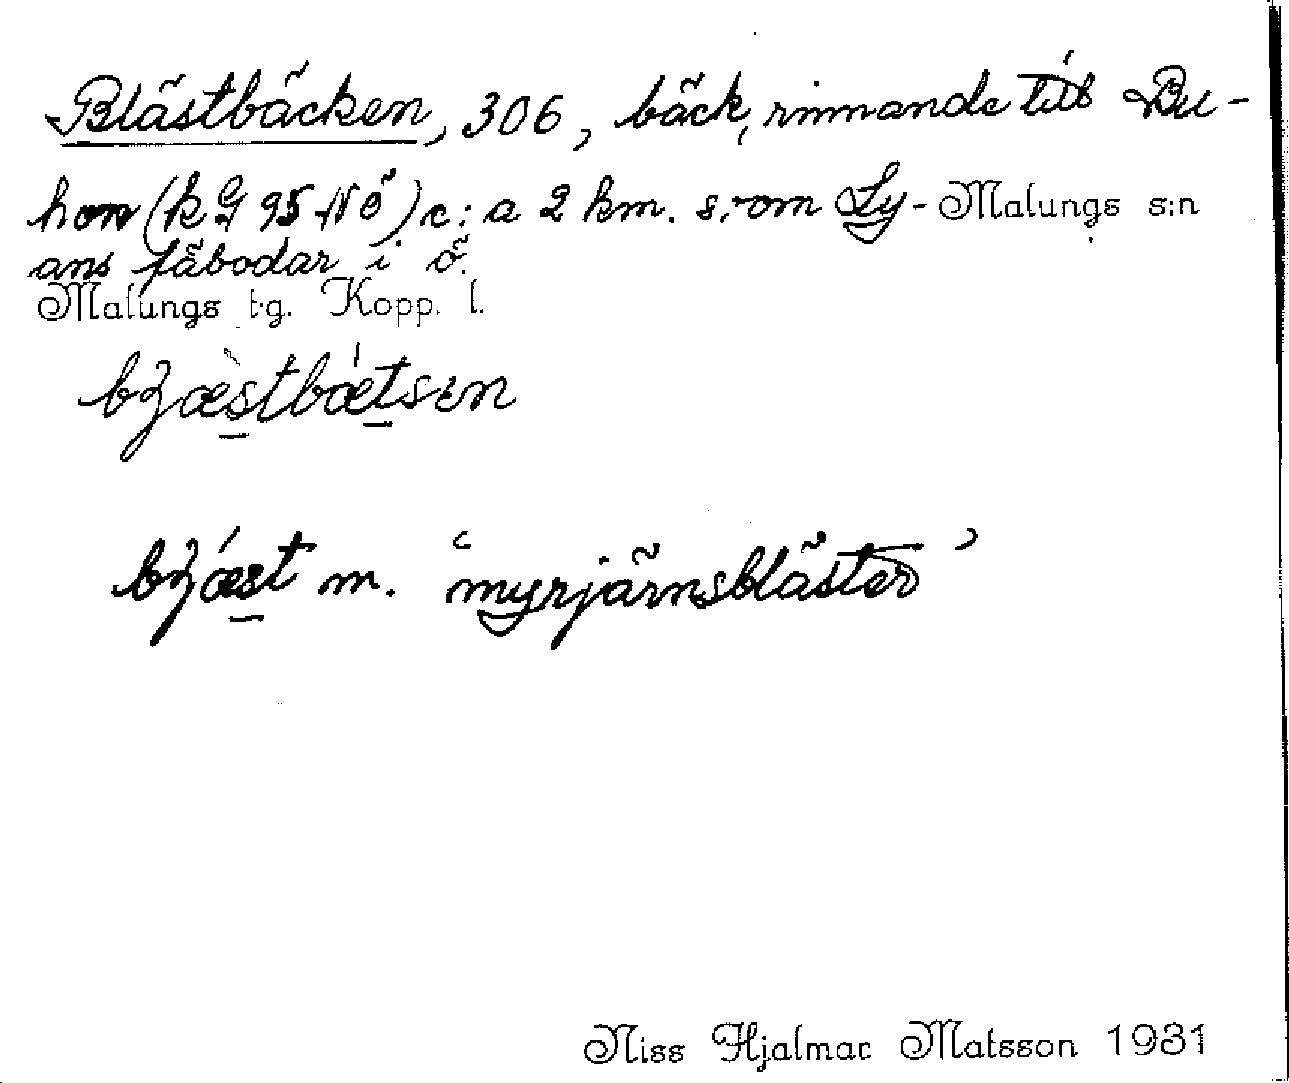 Blästbäcken, 306, bäck, rinnande till Bu-
hon (k G 95 NÖ) c:a 2 km. s. om Ly- Malungs s:n
ans fäbodar i ö.
Malungs t.g. Kopp. l.
bɮæ̀stbǽtsen
bɮǽst m. ‘myrjärnsbläster’
Niss Hjalmar Matsson 1931